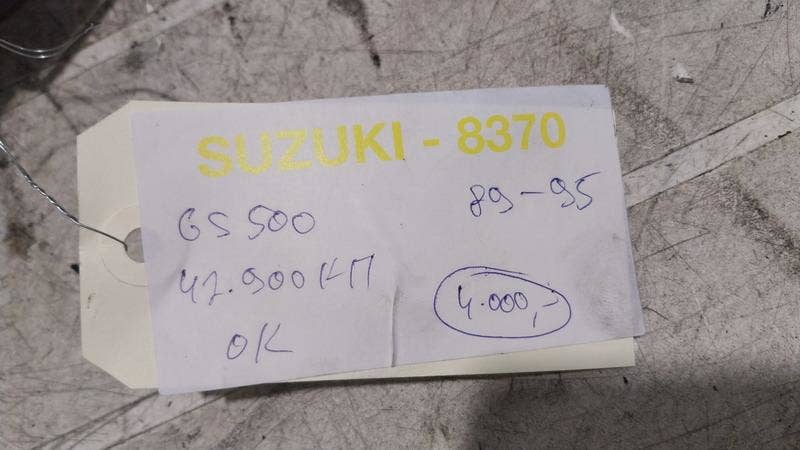 SUZUKI - 8370
GS 500
89-95
42.900 KM
4.000,-
OK